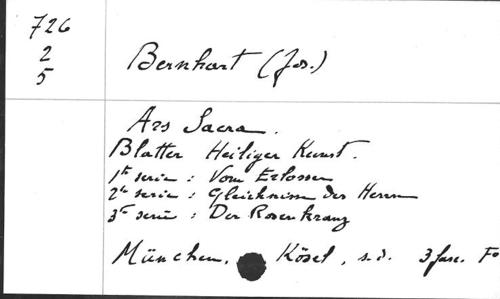 726
2
5
Bernhart (Jos.)
Ars Sacra.
Blatter Heiliger Kunst.
1te serie : Vom Erloser
2te serie : Gleichnisse des Herrn
3e serie : Der Rosenkranz
München, Kösel, s.d. 3 fasc. Fo